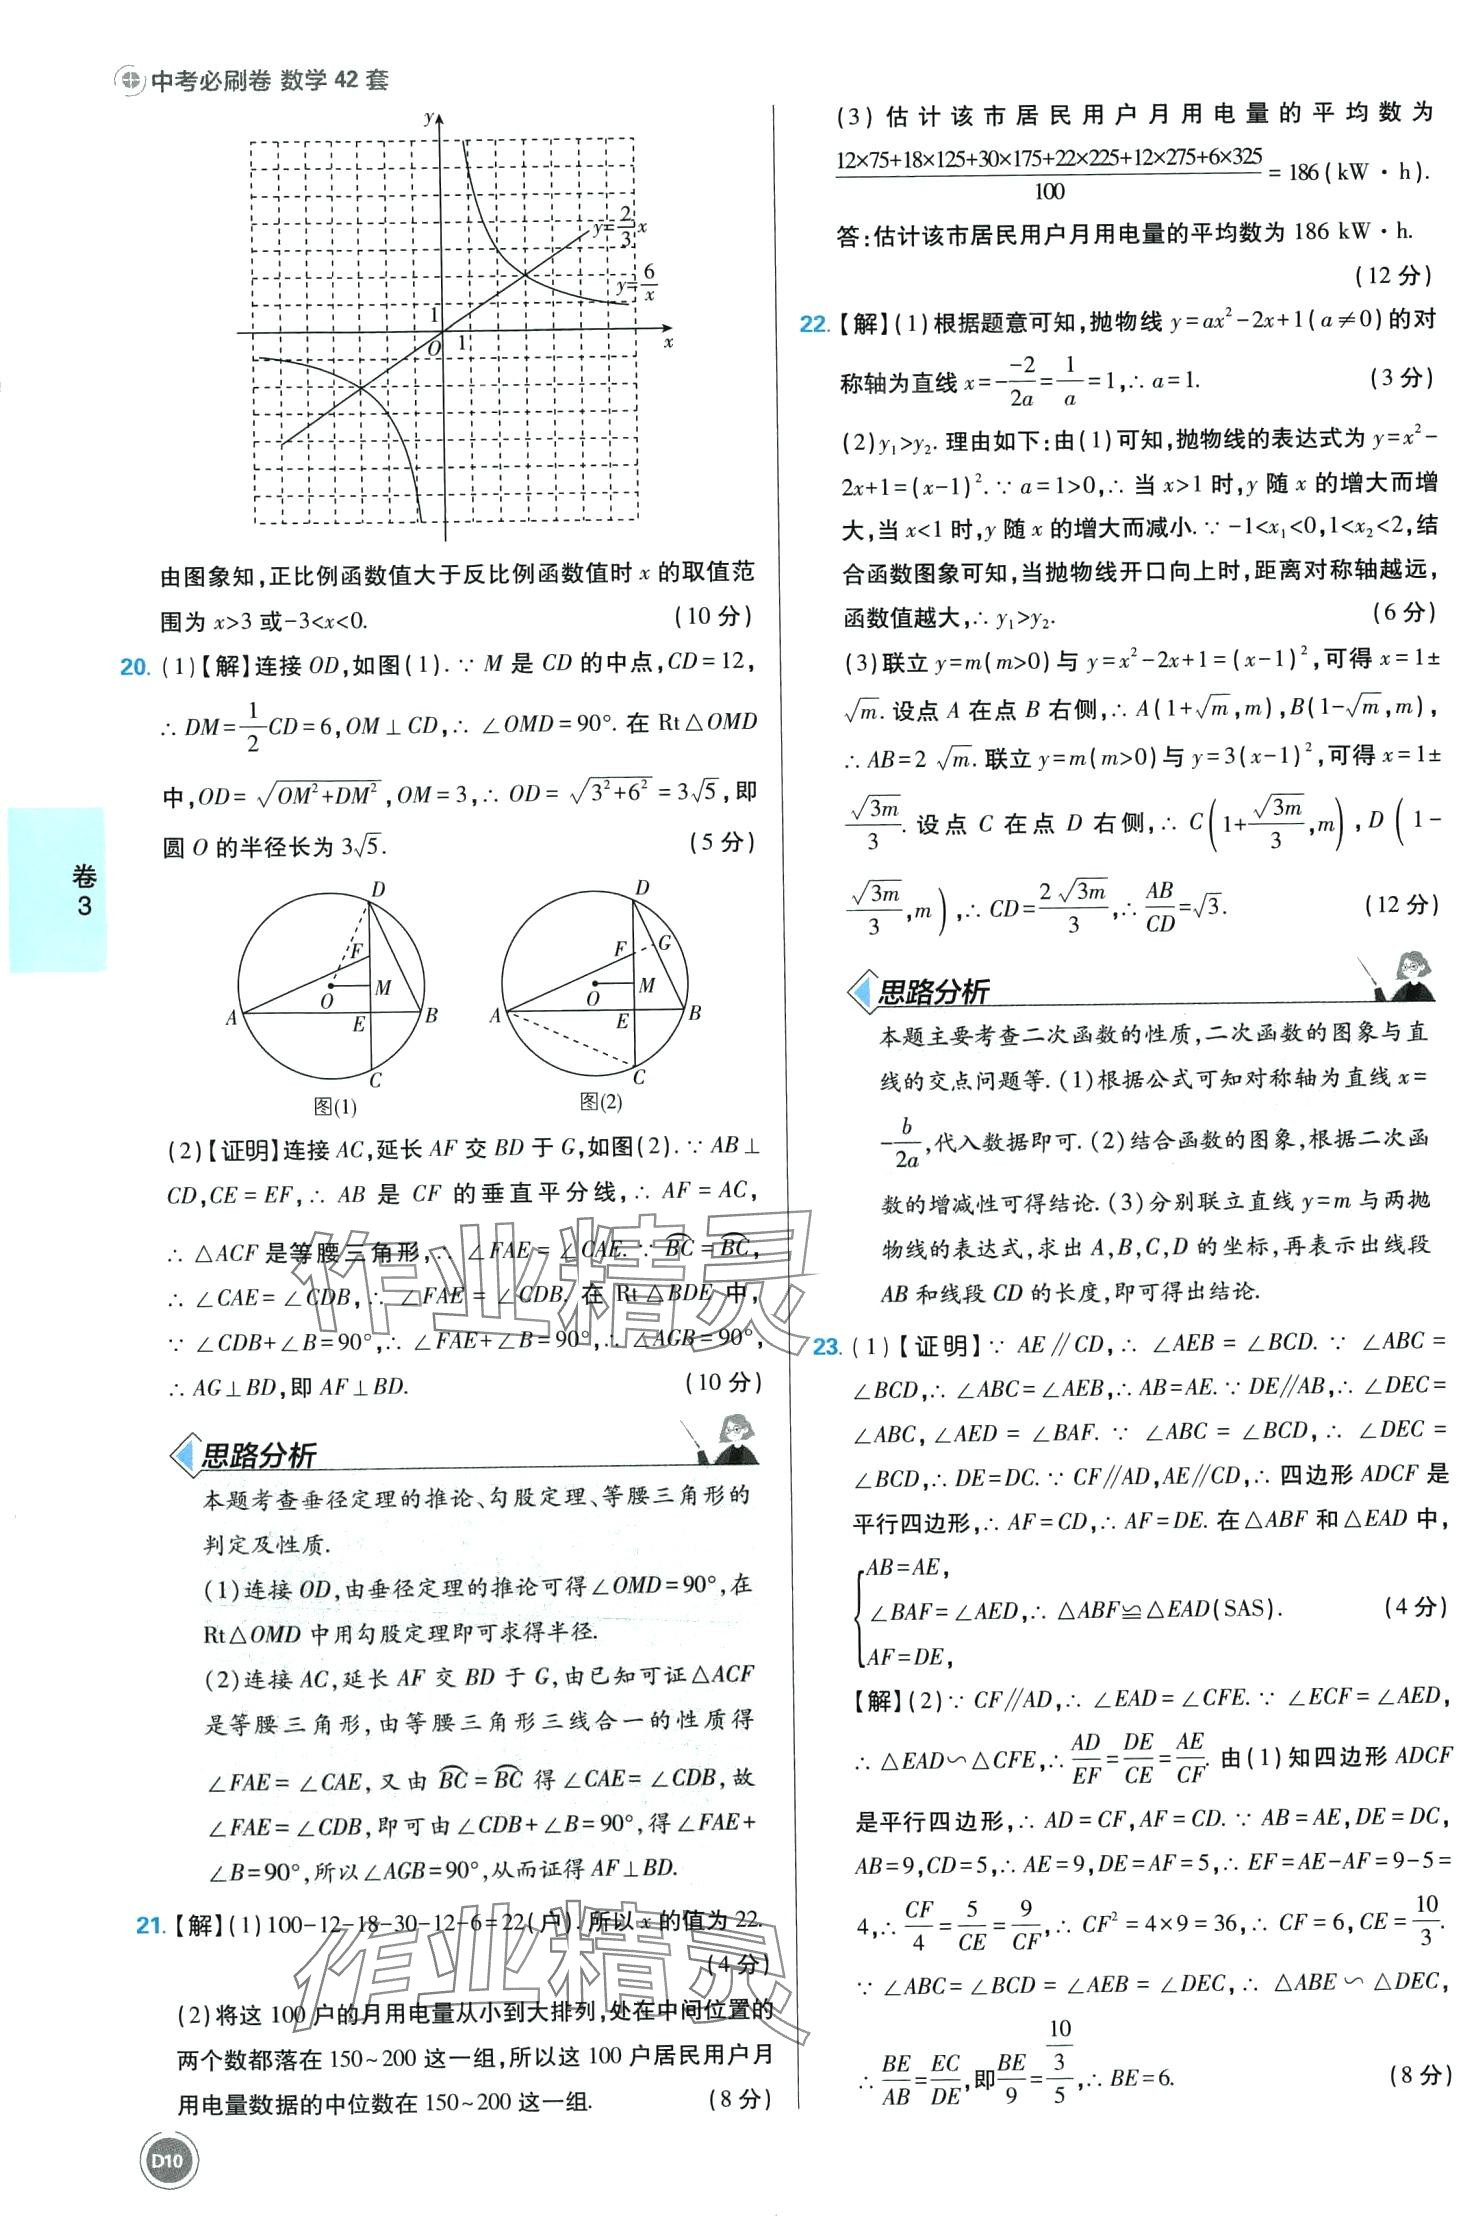 中考必刷卷 数学 42 套
y
y=2/3x
y=6/x
1
O 1 x
由图象知,正比例函数值大于反比例函数值时 x 的取值范
围为 x>3 或-3<x<0. (10 分)
20. (1)【解】连接 OD,如图(1). ∵ M 是 CD 的中点,CD=12,
∴ DM=1/2CD=6,OM⊥CD,∴ ∠OMD=90°. 在 Rt△OMD
中,OD=√(OM²+DM²),OM=3,∴ OD=√(3²+6²)=3√5,即
圆 O 的半径长为 3√5. (5 分)
D F O M A E B C
图(1)
D F G O M A E B C
图(2)
(2)【证明】连接 AC,延长 AF 交 BD 于 G,如图(2). ∵ AB⊥
CD,CE=EF,∴ AB 是 CF 的垂直平分线,∴ AF=AC,
∴ △ACF 是等腰三角形,∴ ∠FAE=∠CAE. ∵ ⌒BC=⌒BC,
∴ ∠CAE=∠CDB,∴ ∠FAE=∠CDB. 在 Rt△BDE 中,
∵ ∠CDB+∠B=90°,∴ ∠FAE+∠B=90°,∴ ∠AGB=90°,
∴ AG⊥BD,即 AF⊥BD. (10 分)
思路分析
本题考查垂径定理的推论、勾股定理、等腰三角形的
判定及性质.
(1)连接 OD,由垂径定理的推论可得∠OMD=90°,在
Rt△OMD 中用勾股定理即可求得半径.
(2)连接 AC,延长 AF 交 BD 于 G,由已知可证△ACF
是等腰三角形,由等腰三角形三线合一的性质得
∠FAE=∠CAE,又由⌒BC=⌒BC 得∠CAE=∠CDB,故
∠FAE=∠CDB,即可由∠CDB+∠B=90°,得∠FAE+
∠B=90°,所以∠AGB=90°,从而证得 AF⊥BD.
21. 【解】(1)100-12-18-30-12-6=22(户). 所以 x 的值为 22.
(4 分)
(2)将这 100 户的月用电量从小到大排列,处在中间位置的
两个数都落在 150~200 这一组,所以这 100 户居民用户月
用电量数据的中位数在 150~200 这一组. (8 分)
(3)估计该市居民用户月用电量的平均数为
(12×75+18×125+30×175+22×225+12×275+6×325)/100=186(kW·h).
答:估计该市居民用户月用电量的平均数为 186 kW·h.
(12 分)
22. 【解】(1)根据题意可知,抛物线 y=ax²-2x+1(a≠0)的对
称轴为直线 x=-(-2)/(2a)=1/a=1,∴ a=1. (3 分)
(2)y₁>y₂. 理由如下:由(1)可知,抛物线的表达式为 y=x²-
2x+1=(x-1)². ∵ a=1>0,∴ 当 x>1 时,y 随 x 的增大而增
大,当 x<1 时,y 随 x 的增大而减小. ∵ -1<x₁<0,1<x₂<2,结
合函数图象可知,当抛物线开口向上时,距离对称轴越远,
函数值越大,∴ y₁>y₂. (6 分)
(3)联立 y=m(m>0)与 y=x²-2x+1=(x-1)²,可得 x=1±
√m. 设点 A 在点 B 右侧,∴ A(1+√m,m),B(1-√m,m),
∴ AB=2√m. 联立 y=m(m>0)与 y=3(x-1)²,可得 x=1±
√(3m)/3. 设点 C 在点 D 右侧,∴ C(1+√(3m)/3,m),D(1-
√(3m)/3,m),∴ CD=2√(3m)/3,∴ AB/CD=√3. (12 分)
思路分析
本题主要考查二次函数的性质,二次函数的图象与直
线的交点问题等.(1)根据公式可知对称轴为直线 x=
-b/(2a),代入数据即可.(2)结合函数的图象,根据二次函
数的增减性可得结论.(3)分别联立直线 y=m 与两抛
物线的表达式,求出 A,B,C,D 的坐标,再表示出线段
AB 和线段 CD 的长度,即可得出结论.
23. (1)【证明】∵ AE∥CD,∴ ∠AEB=∠BCD. ∵ ∠ABC=
∠BCD,∴ ∠ABC=∠AEB,∴ AB=AE. ∵ DE∥AB,∴ ∠DEC=
∠ABC,∠AED=∠BAF. ∵ ∠ABC=∠BCD,∴ ∠DEC=
∠BCD,∴ DE=DC. ∵ CF∥AD,AE∥CD,∴ 四边形 ADCF 是
平行四边形,∴ AF=CD,∴ AF=DE. 在△ABF 和△EAD 中,
AB=AE,
∠BAF=∠AED,∴ △ABF≌△EAD(SAS). (4 分)
AF=DE,
【解】(2)∵ CF∥AD,∴ ∠EAD=∠CFE. ∵ ∠ECF=∠AED,
∴ △EAD∽△CFE,∴ AD/EF=DE/CE=AE/CF. 由(1)知四边形 ADCF
是平行四边形,∴ AD=CF,AF=CD. ∵ AB=AE,DE=DC,
AB=9,CD=5,∴ AE=9,DE=AF=5,∴ EF=AE-AF=9-5=
4,∴ CF/4=5/CE=9/CF,∴ CF²=4×9=36,∴ CF=6,CE=10/3.
∵ ∠ABC=∠BCD=∠AEB=∠DEC,∴ △ABE∽△DEC,
∴ BE/AB=EC/DE,即BE/9=(10/3)/5,∴ BE=6. (8 分)
卷
3
作业精灵
作业精灵
D10